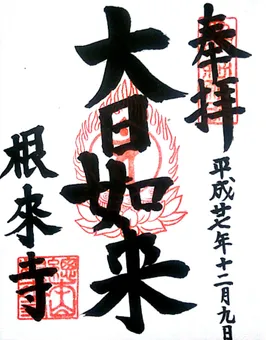 奉拝
平成廿七年十二月九日
大日如来
根来寺